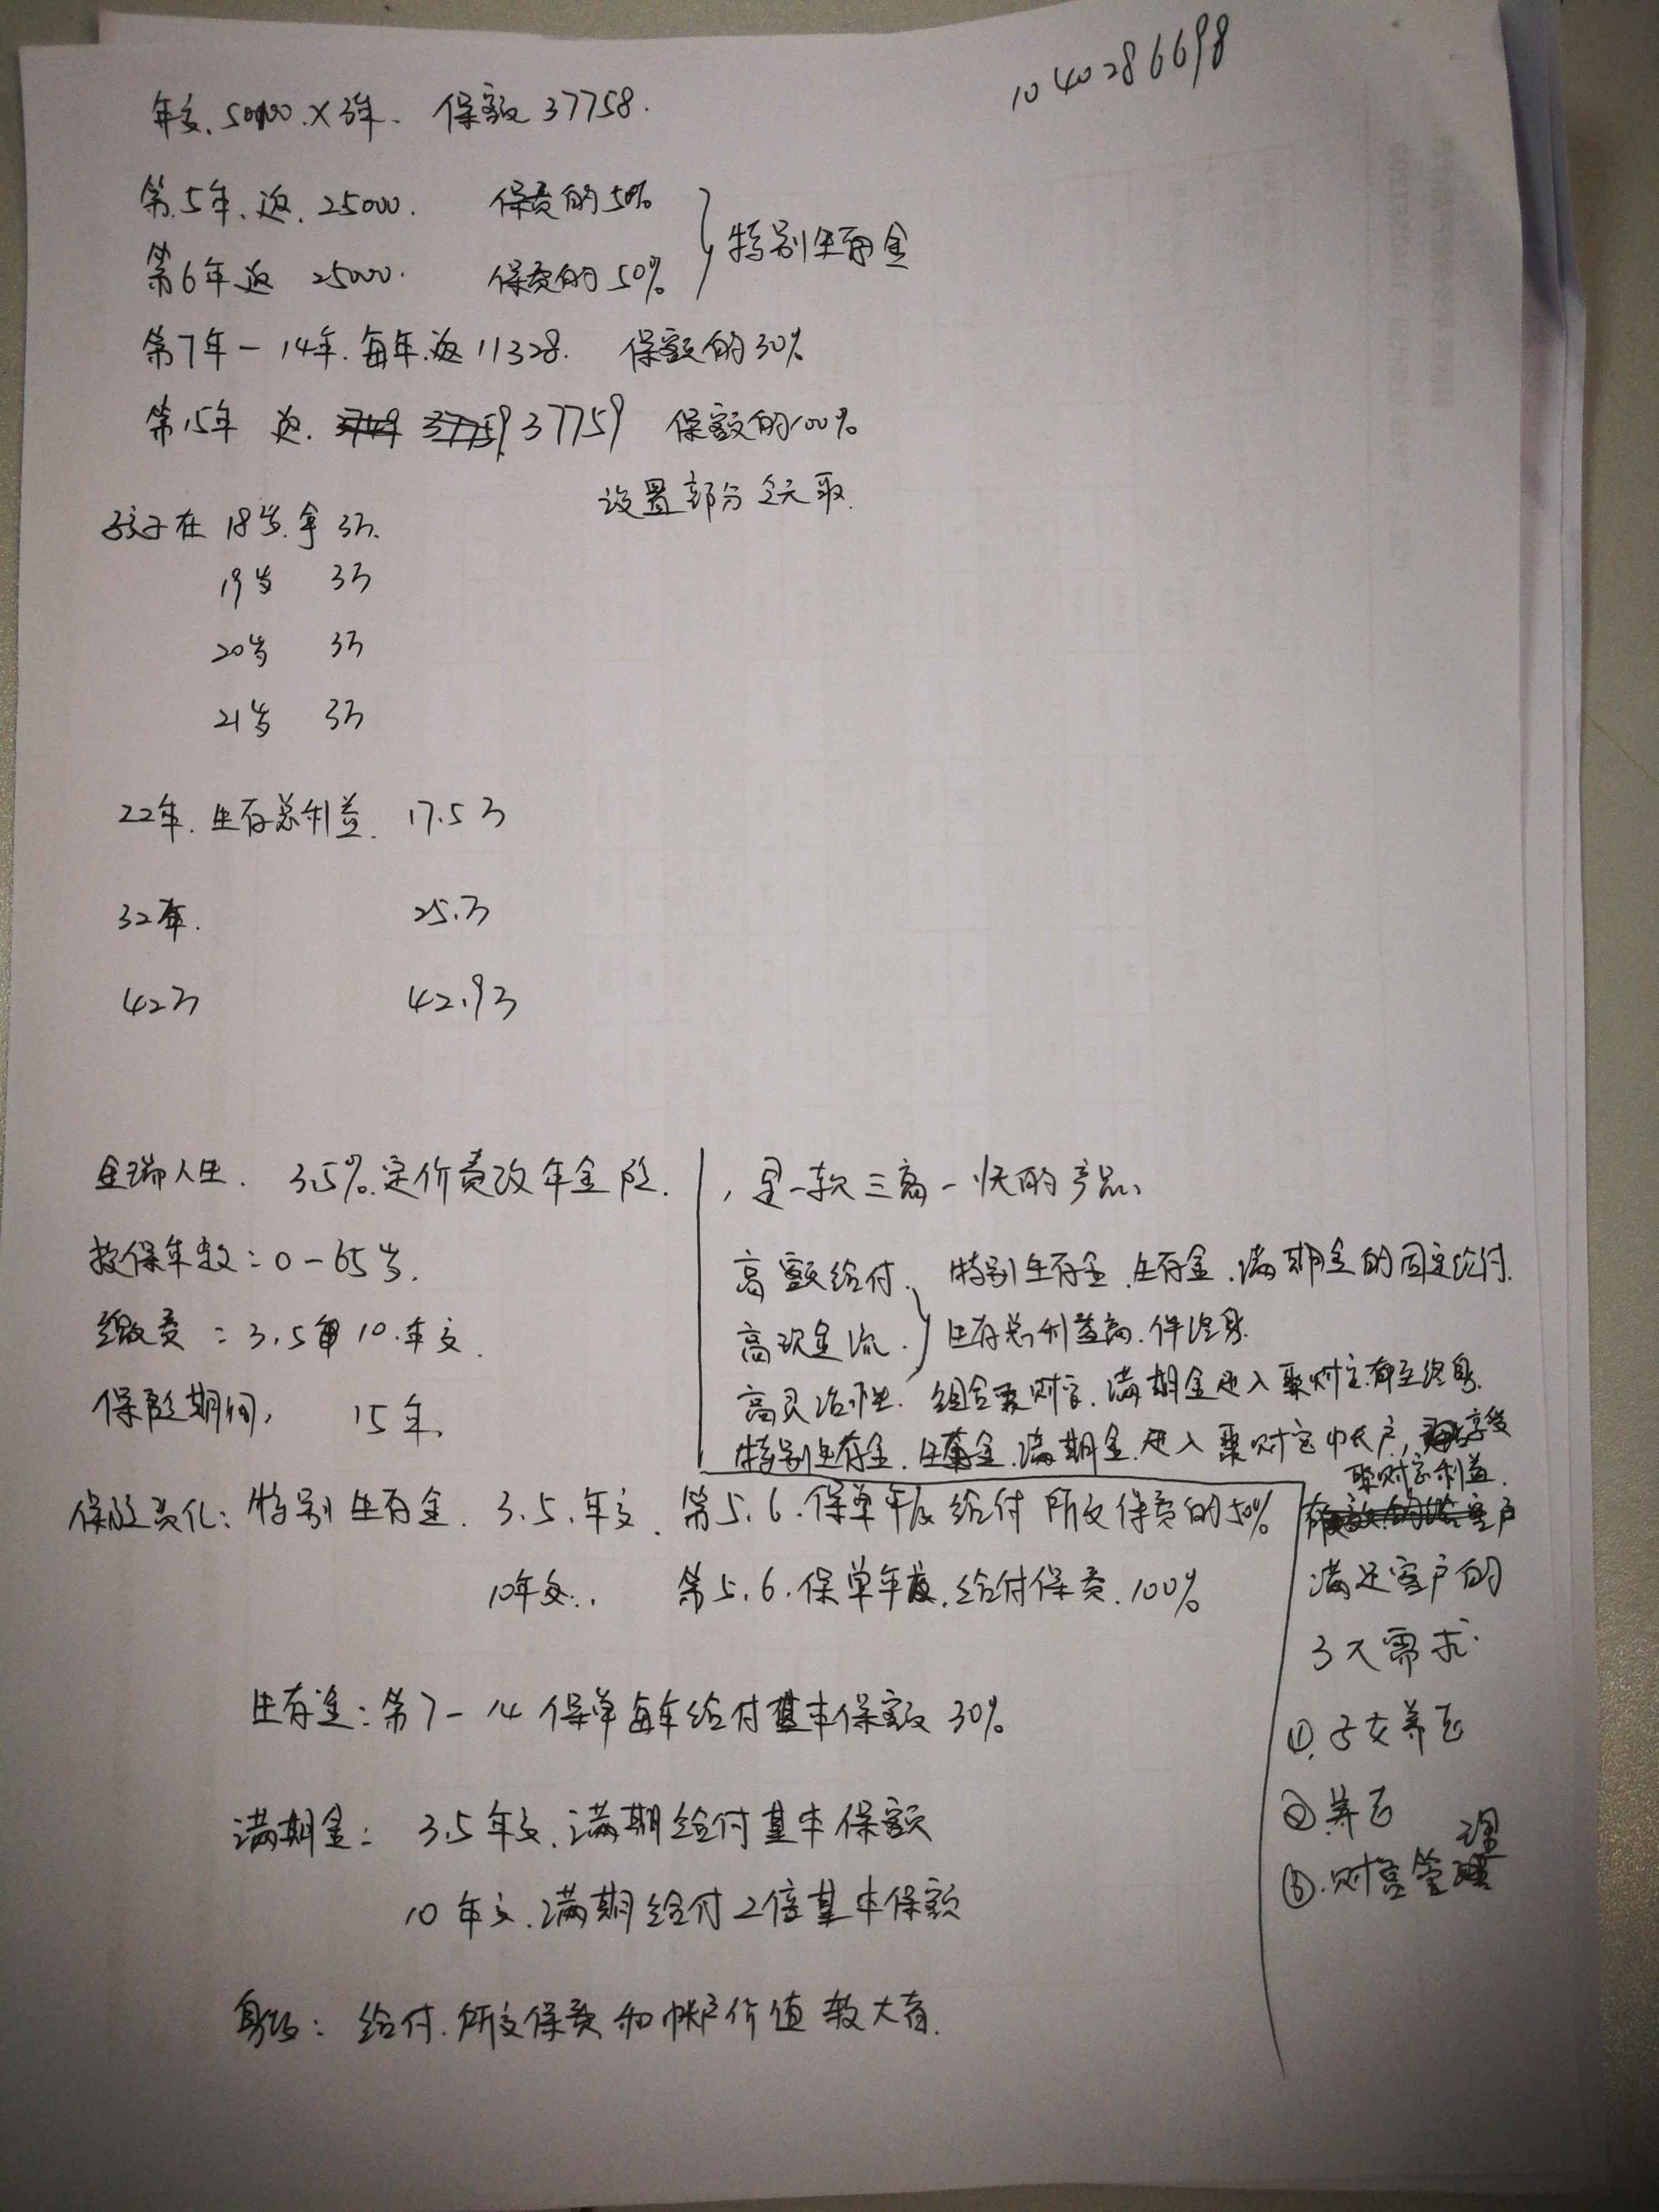 1040286698
年交.50000.×3年. 保额37758.
第5年.返.25000. 保费的50%
第6年返 25000. 保费的50%
特别生存金
第7年-14年.每年.返11328. 保额的30%
第15年 返. 37759 保额的100%
设置部分领取.
孩子在18岁.拿 3万.
19岁 3万
20岁 3万
21岁 3万
22年.生存总利益. 17.5万
32年. 25.万
42万 42.9万
金瑞人生. 3.5%.定价费改年金险.
投保年数:0-65岁.
缴费:3.5 10.年交.
保险期间, 15年.
,是一款三高一快的产品、
高额给付. 特别生存金.生存金.满期金的固定给付.
高现金流. 生存总利益高.伴终身.
高灵活性. 组合聚财宝.满期金进入聚财宝 终身.
特别生存金.生存金.满期金.进入聚财宝中 户,享受
聚财宝利益.
保险责任:特别生存金.3.5.年交.第5.6.保单年度给付所交保费的50%
10年交.. 第5.6.保单年度.给付保费.100%
生存金:第7-14保单每年给付基本保额30%
满期金:3.5年交.满期给付基本保额
10年交.满期给付2倍基本保额
身故:给付.所交保费和帐户价值较大者.
客户
满足客户的
3大需求.
①.子女养老
②养老
③.财富管理